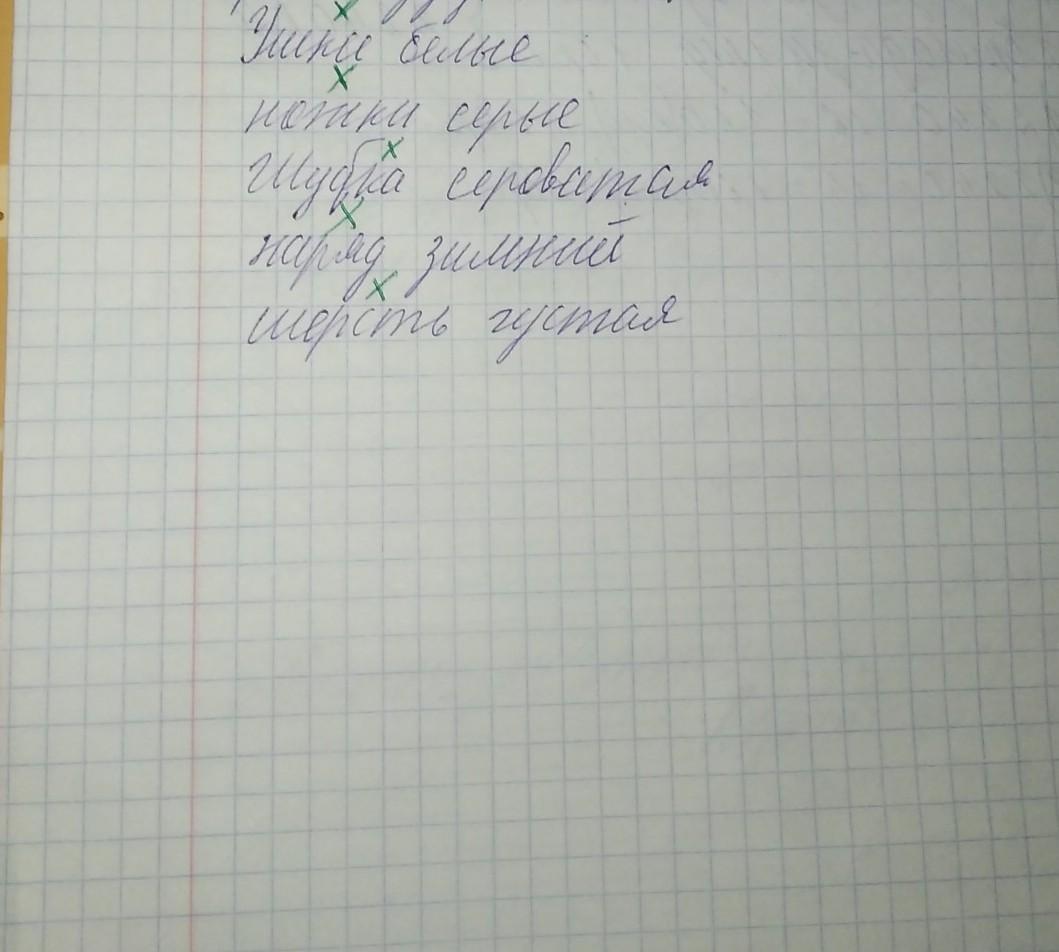 Ушки белые
ножки серые
Шубка сероватая
наряд зимний
шерсть густая